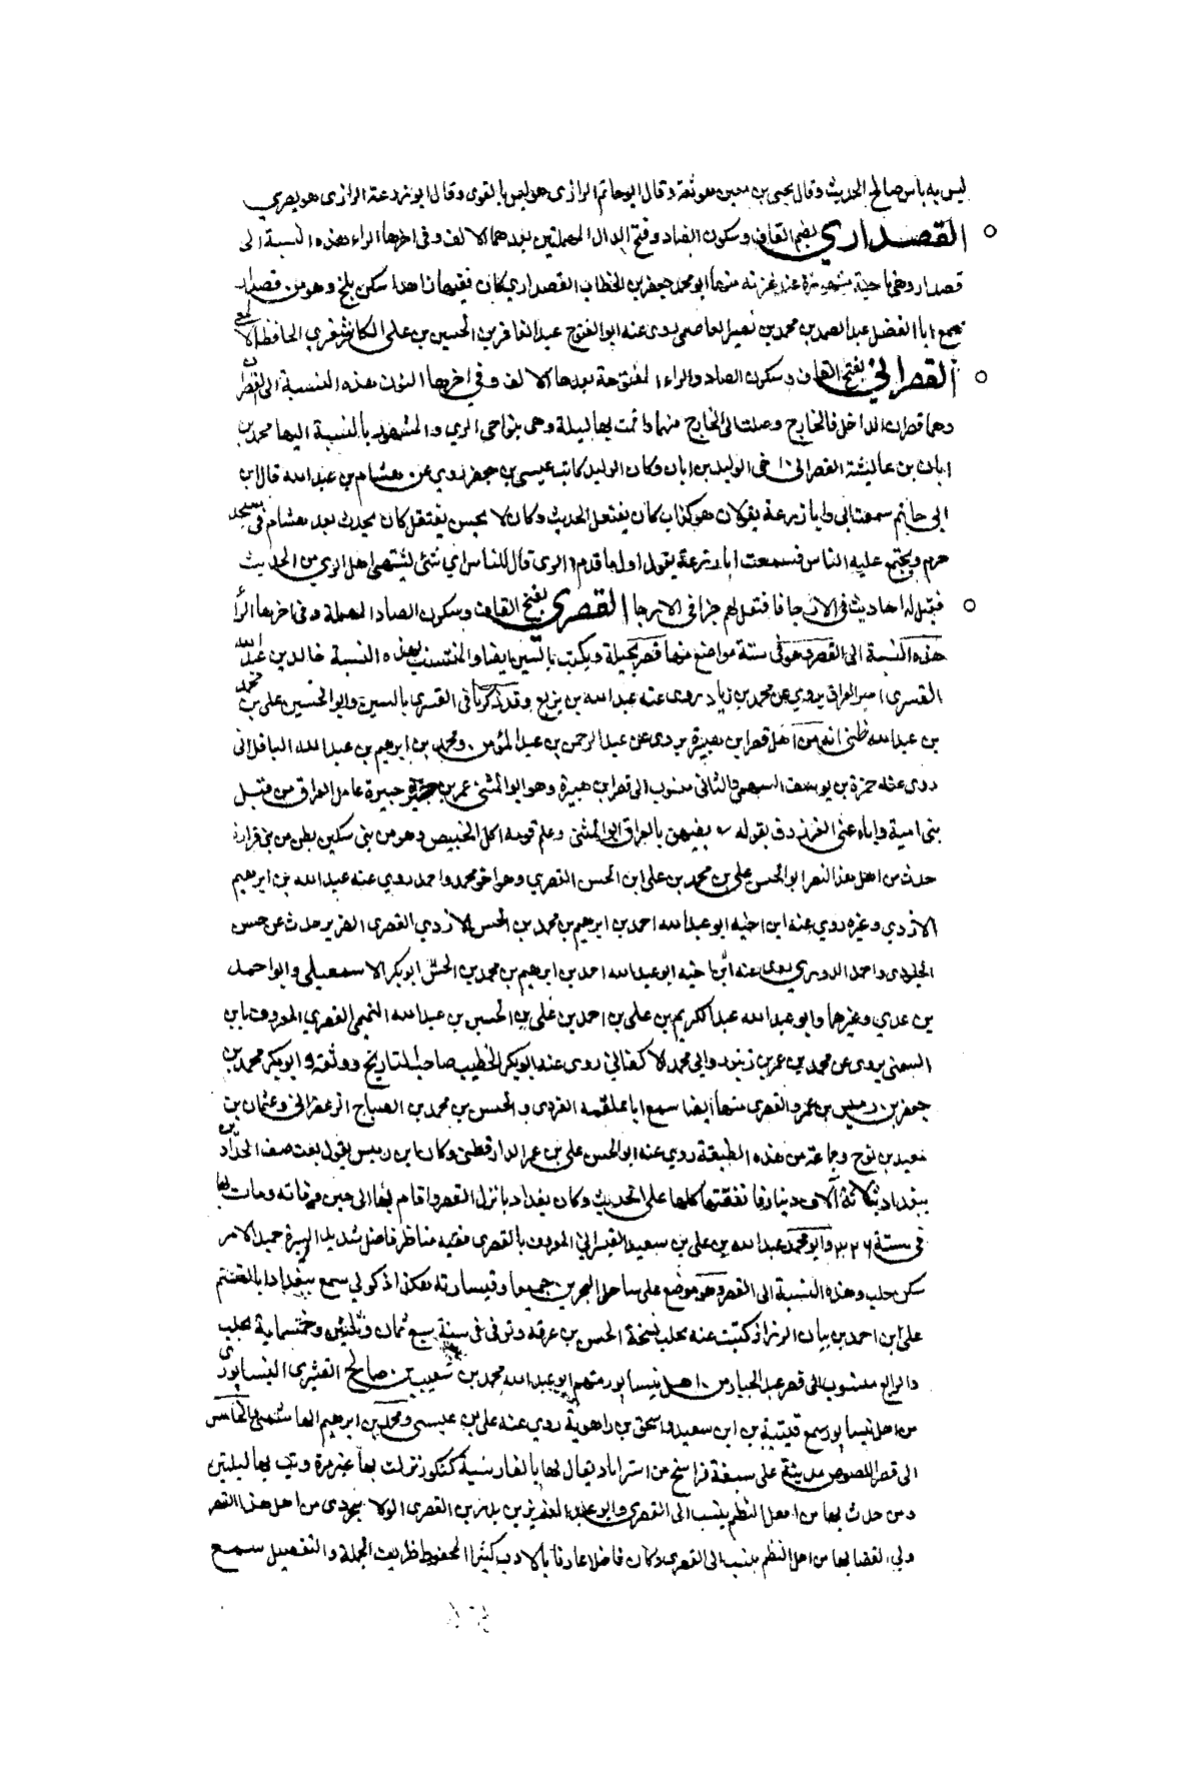 ليس به بأس صالح الحديث وقال يحيى بن معين هو ثقة وقال ابو حاتم الرازى هو ليس بالقوى وقال ابو زرعة الرازى هو بصري
القصداري بضم القاف وسكون الصاد وفتح الدال المهملتين بعدهما الالف وفى اخرها الراء هذه النسبة الى
قصدار وهى ناحية مشهورة عند غزنه منها ابو محمد جعفر بن الخطاب القصداري كان فقيها زاهدا سكن بلخ وهو من قصدار
سمع ابا الفضل عبد الصمد بن محمد بن نصير العاصمي روى عنه ابو الفتوح عبد الغافر بن الحسين بن على الكاشغري الحافظ الالمعي
القصراني بفتح القاف وسكون الصاد والراء المفتوحة بعدها الالف وفي اخرها النون هذه النسبة الى القصران
وهما قصران الداخل والخارج وصلت الى الخارج منهما وبت بها ليلة وهى بنواحى الري والمشهور بالنسبة اليها محمد بن
ابان بن عائشة القصرانى اخى الوليد بن ابان وكان الوليد كاتب عيسى بن جعفر روي عن هشام بن عبد الله قال ابن
ابى حاتم سمعت ابى وابا زرعة يقولان هو كذاب كان يفتعل الحديث وكان لا يحسن يفتعل كان يحدث بعد هشام فى مسجد
حرم ويجتمع عليه الناس فسمعت ابا زرعة يقول اول ما قدم الرى قال للناس اي شئ يشتهى اهل الري من الحديث
فقيل له احاديث فى الارجا فافتعل لهم جزا فى الارجا القصري بفتح القاف وسكون الصاد المهملة وفى اخرها الرا
هذه النسبة الى القصر وهو فى ستة مواضع منها قصر بجيلة ويكتب بالسين ايضا والمنتسب بهذه النسبة خالد بن عبد الله
القسرى امير العراق يروي عن محمد بن زياد روى عنه عبد الله بن بزيع وقد ذكرنا فى القسرى بالسين وابو الحسين على بن محمد
بن عبد الله ظنى انه من اهل قصر ابن هبيرة يروى عن عبد الرحمن بن عبد المؤمن ومحمد بن ابرهيم بن عبد الله الباقلانى
روى عنه حمزة بن يوسف السهمى والثانى منسوب الى قصر ابن هبيرة وهو ابو المثنى عمر بن هبيرة عامل العراق من قبل
بنى امية واياه عنى الفرزدق بقوله تفيهق بالعراق ابو المثنى وعلم قومه اكل الخبيص وهو من بنى سكين بطن من بنى فزارة
حدث من اهل هذا القصر ابو الحسن على بن محمد بن على ابن الحسن القصري وهو اخو محمد واحمد روي عنه عبد الله بن ابرهيم
الازدي وغيره روي عنه ابن اخيه ابو عبد الله احمد بن ابرهيم بن محمد بن الحسن الازدي القصرى الضرير حدث عن حسن
الجلودى واحمد الدوري روى عنه ابن اخيه ابو عبد الله احمد بن ابرهيم بن محمد بن الحسن ابو بكر الاسمعيلى وابو احمد
بن عدي وغيرهما وابو عبد الله عبد الكريم بن على بن احمد بن على بن الحسين بن عبد الله التميمى القصري المعروف بابن
السيبى يروى عن محمد بن عمر بن زنبور وابي محمد الاكفانى روى عنه ابو بكر الخطيب صاحب التاريخ ووثقه وابو بكر محمد بن
جعفر بن رميس بن عمرو القصرى منها ايضا سمع ابا علقمه الفروى والحسن بن محمد بن الصباح الزعفرانى وعثمان بن
معبد بن نوح وجماعة من هذه الطبقة روي عنه ابو الحسن على بن عمر الدارقطنى وكان ابن رميس يقول بعت صف الحدادين
ببغداد بثلاثة آلاف دينار فانفقتها كلها على الحديث وكان بغداديا نزل القصر واقام بها الى حين وفاته ومات بها
فى سنة ٣٢٦ وابو محمد عبد الله بن على بن سعيد القيسرانى المعروف بالقصرى فقيه مناظر فاضل شديد السيرة حميد الامر
سكن حلب وهذه النسبة الى القصر وهو موضع على ساحل البحر بن حيفا وقيسارته هكذا ذكر لي سمع ببغداد ابا القسم
على ابن احمد بن بيان الرزاز كتبت عنه بحلب نسخة الحسن بن عرفه وتوفى فى سنة سبع ثمان وثلثين وخمسماية بحلب
والرابع منسوب الى قصر عبد الجبار من اهل نيسابور منهم ابو عبد الله محمد بن شعيب بن صالح القشيرى النيسابورى
من اهل نيسابور سمع قتيبة بن ابن سعيد واسحق بن راهوية روي عنه على بن عيسى ومحمد بن ابرهيم الهاشمى والخامس
الى قصر اللصوص مدينة على سبعة فراسخ من استراباد يقال لها بالفارسية كنكور نزلت بها غير مرة وبت بها ليلتين
ومن حدث بها من اهل النظم ينسب الى القصري وابو عبد العزيز بن بدر بن القصرى الولاشجردى من اهل هذا القصر
ولى القضا بها من اهل النظم ينسب الى القصرى وكان فاضلا عارفا بالادب كثير المحفوظ ظريف الجملة والتفصيل سمع